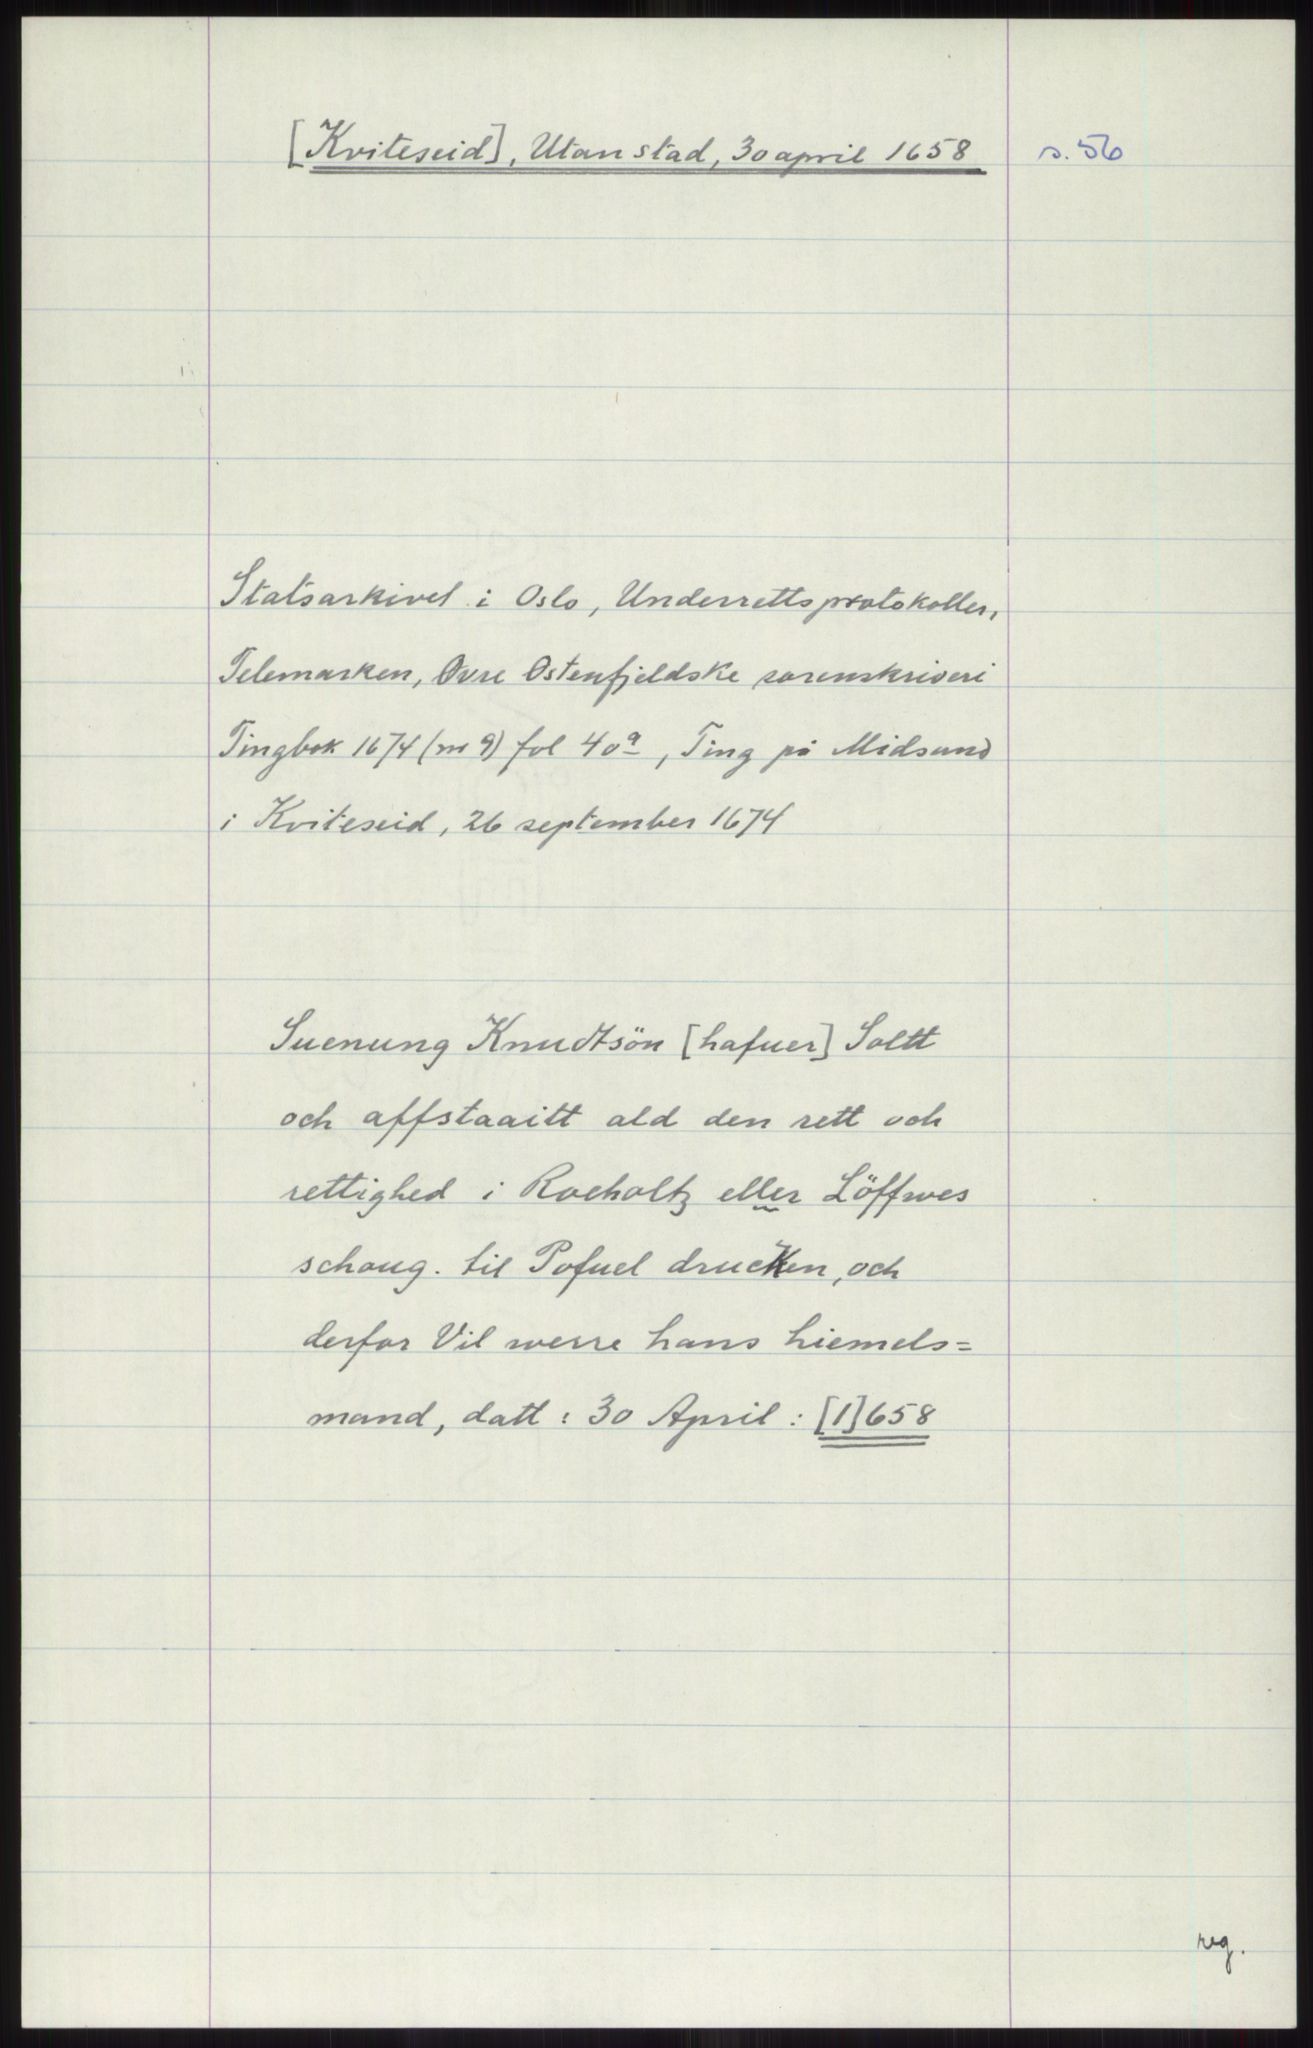 [Kviteseid], Utan stad, 30 april 1658 s. 56
Statsarkivet i Oslo, Underrettsprotokoller,
Telemarken, Øvre Østenfjeldske sorenskriveri
Tingbok 1674 (nr 9) fol 40a, Ting på Midsund
i Kviteseid, 26 september 1674
Suenung Knudtsön [hafuer] Soltt
och affstaaitt ald den rett och
rettighed i Roeholtz eller Löffwes
schoug. til Pofuel drucken, och
derfor Vil werre hans hiemels=
mand, datt: 30 April: [1]658
reg.